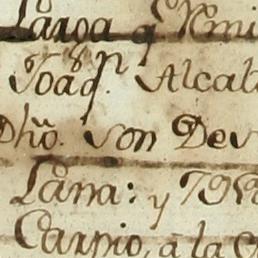 Larga q
Joaqn. Alcal
Dho. son De
Larra: y
Carpio, a la